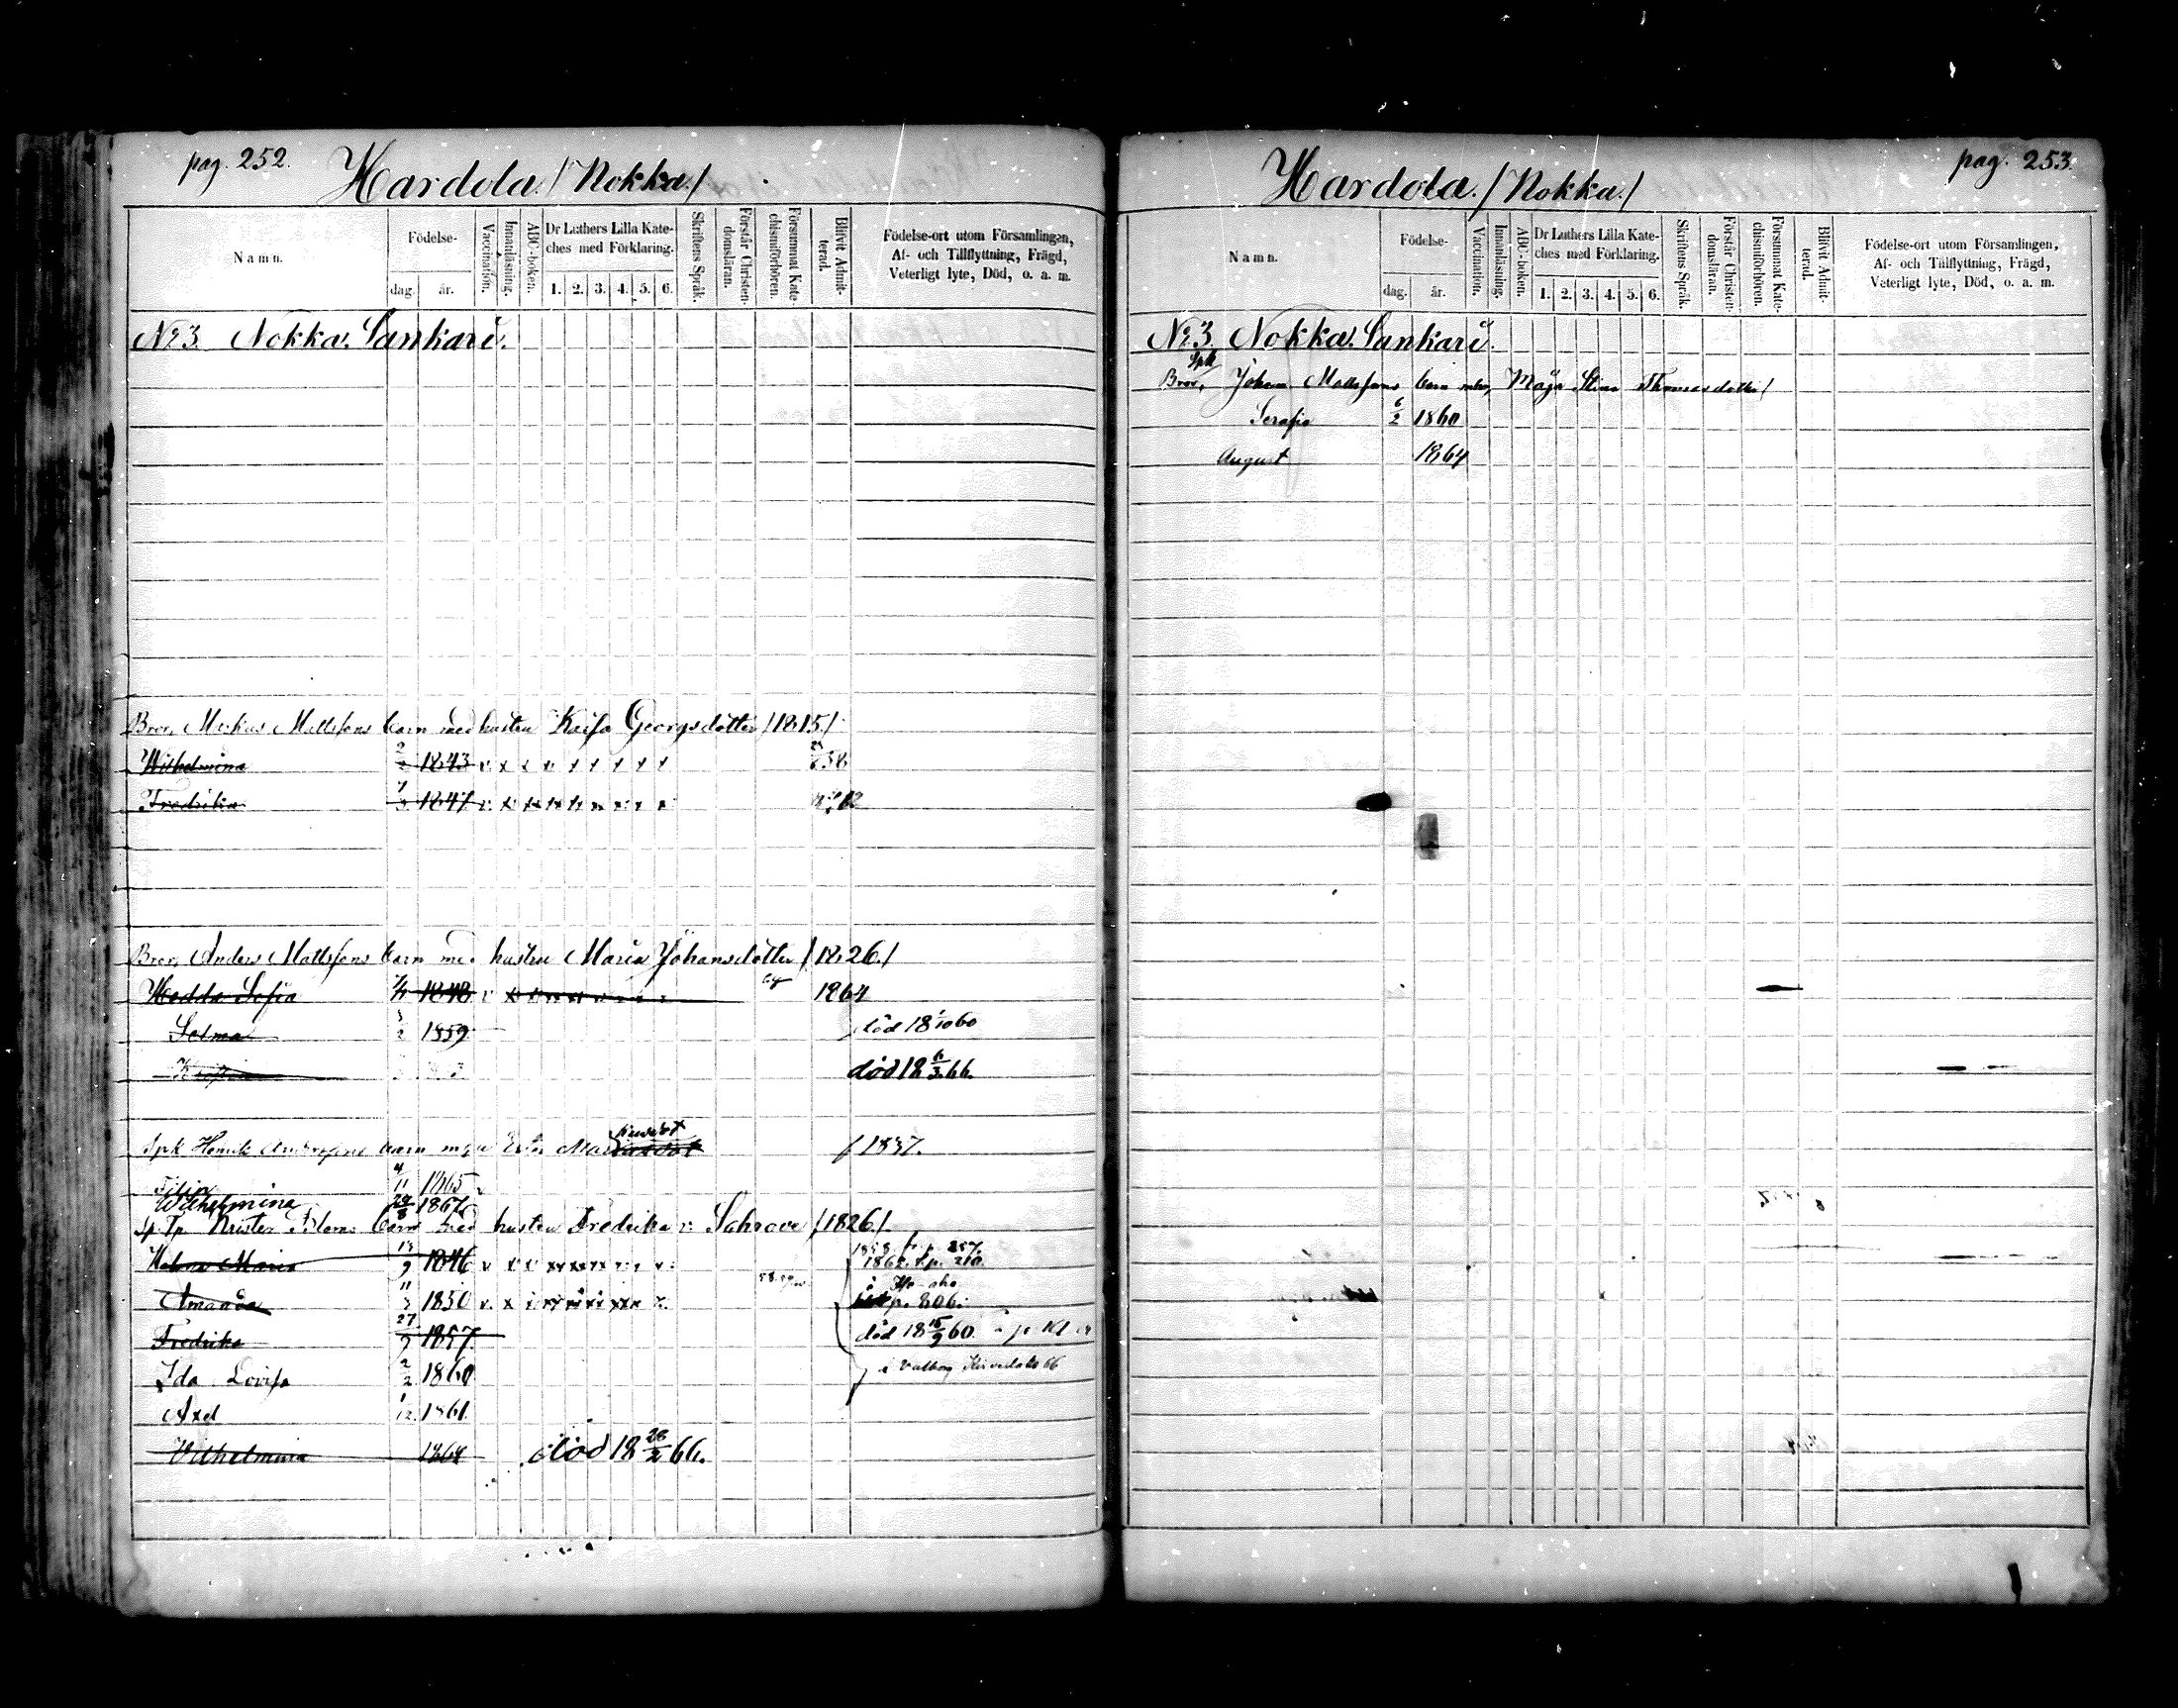 pag. 252.
Hardola. /Nokka./
Namn.
Födelse-
dag.
år.
Vaccination.
Innanläsning.
ABC-boken.
Dr Luthers Lilla Kate-
ches med Förklaring.
1. 2. 3. 4. 5. 6.
Skriftens Språk.
Förstår Christen-
domsläran.
Försummat Kate-
chismiförhören.
Blifvit Admit-
terad.
Födelse-ort utom Församlingen,
Af- och Tillflyttning, Frägd,
Veterligt lyte, Död, o. a. m.
No 3. Nokka. Sankari.
Bror, Markus Mattssons barn med hustru Kaisa Georgsdotter /1815./
Wilhelmina 2/2 1843 v x x v x x x x x x 58
Fredrika 1847 v x x x x x x x x 62
Bror, Anders Mattssons barn med hustru Maria Johansdotter /1826./
Hedda Sofia 1848 v 1864
Selma 3/2 1859 död 18 1/10 60
död 18 6/3 66.
Spk Henrik barn med f 1837.
4/11 1865
Wilhelmina 29/8 1867
Sp. Tp. Krister Bloms barn med hustru Fredrika v. Sahrove /1826./
Helena Maria 13/9 1846 1858 fr. p. 257.
1862. t. p. 210.
Amanda 11/3 1850 v. x p. 206.
Fredrika 27/9 1857. död 18 15/9 60.
Ida Lovisa 2/2 1860 i 66
Axel 1/12 1861.
Vilhelmina 1864 död 18 28/2 66.
pag. 253.
Hardola. /Nokka./
Namn.
Födelse-
dag.
år.
Vaccination.
Innanläsning.
ABC-boken.
Dr Luthers Lilla Kate-
ches med Förklaring.
1. 2. 3. 4. 5. 6.
Skriftens Språk.
Förstår Christen-
domsläran.
Försummat Kate-
chismiförhören.
Blifvit Admit-
terad.
Födelse-ort utom Församlingen,
Af- och Tillflyttning, Frägd,
Veterligt lyte, Död, o. a. m.
No 3. Nokka. Sankari.
Spk
Bror, Johan Mattssons barn Maja Stina Thomasdotter/
Serafia 6/2 1860
August 1864